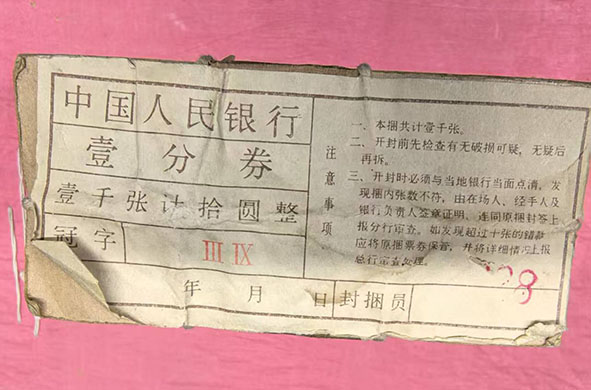 中国人民银行
壹分券
壹千张计拾圆整
冠字 III IX
年 月 日 封捆员
注意事项
一、本捆共计壹千张。
二、开封前先检查有无破损可疑，无疑后
再拆。
三、开封时必须与当地银行当面点清，发
现捆内张数不符，由在场人、经手人及
银行负责人签章证明，连同原捆封签上
报分行审查。如发现超过十张的错款
应将原捆票券保留，并将详细情况上报
总行审查处理。